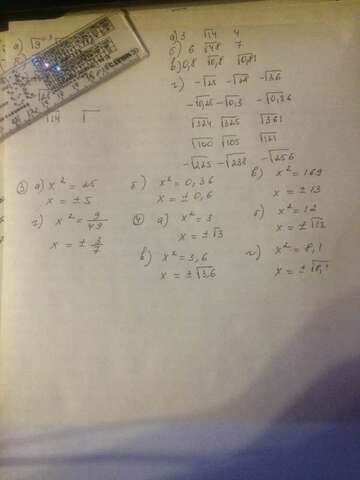 а) √9
а) 3 √14 4
б) 6 √48 7
в) 0,8 √0,8 √0,81
г) -√25 -√28 -√36
-√0,25 -√0,3 -√0,36
√324 √325 √361
√100 √105 √121
-√225 -√238 -√256
√14 √
③ а) x² = 25
x = ± 5
б) x² = 0,36
x = ± 0,6
в) x² = 169
x = ± 13
г) x² = 9/49
x = ± 3/7
④ а) x² = 3
x = ± √3
б) x² = 12
x = ± √12
в) x² = 3,6
x = ± √3,6
г) x² = 8,1
x = ± √8,1